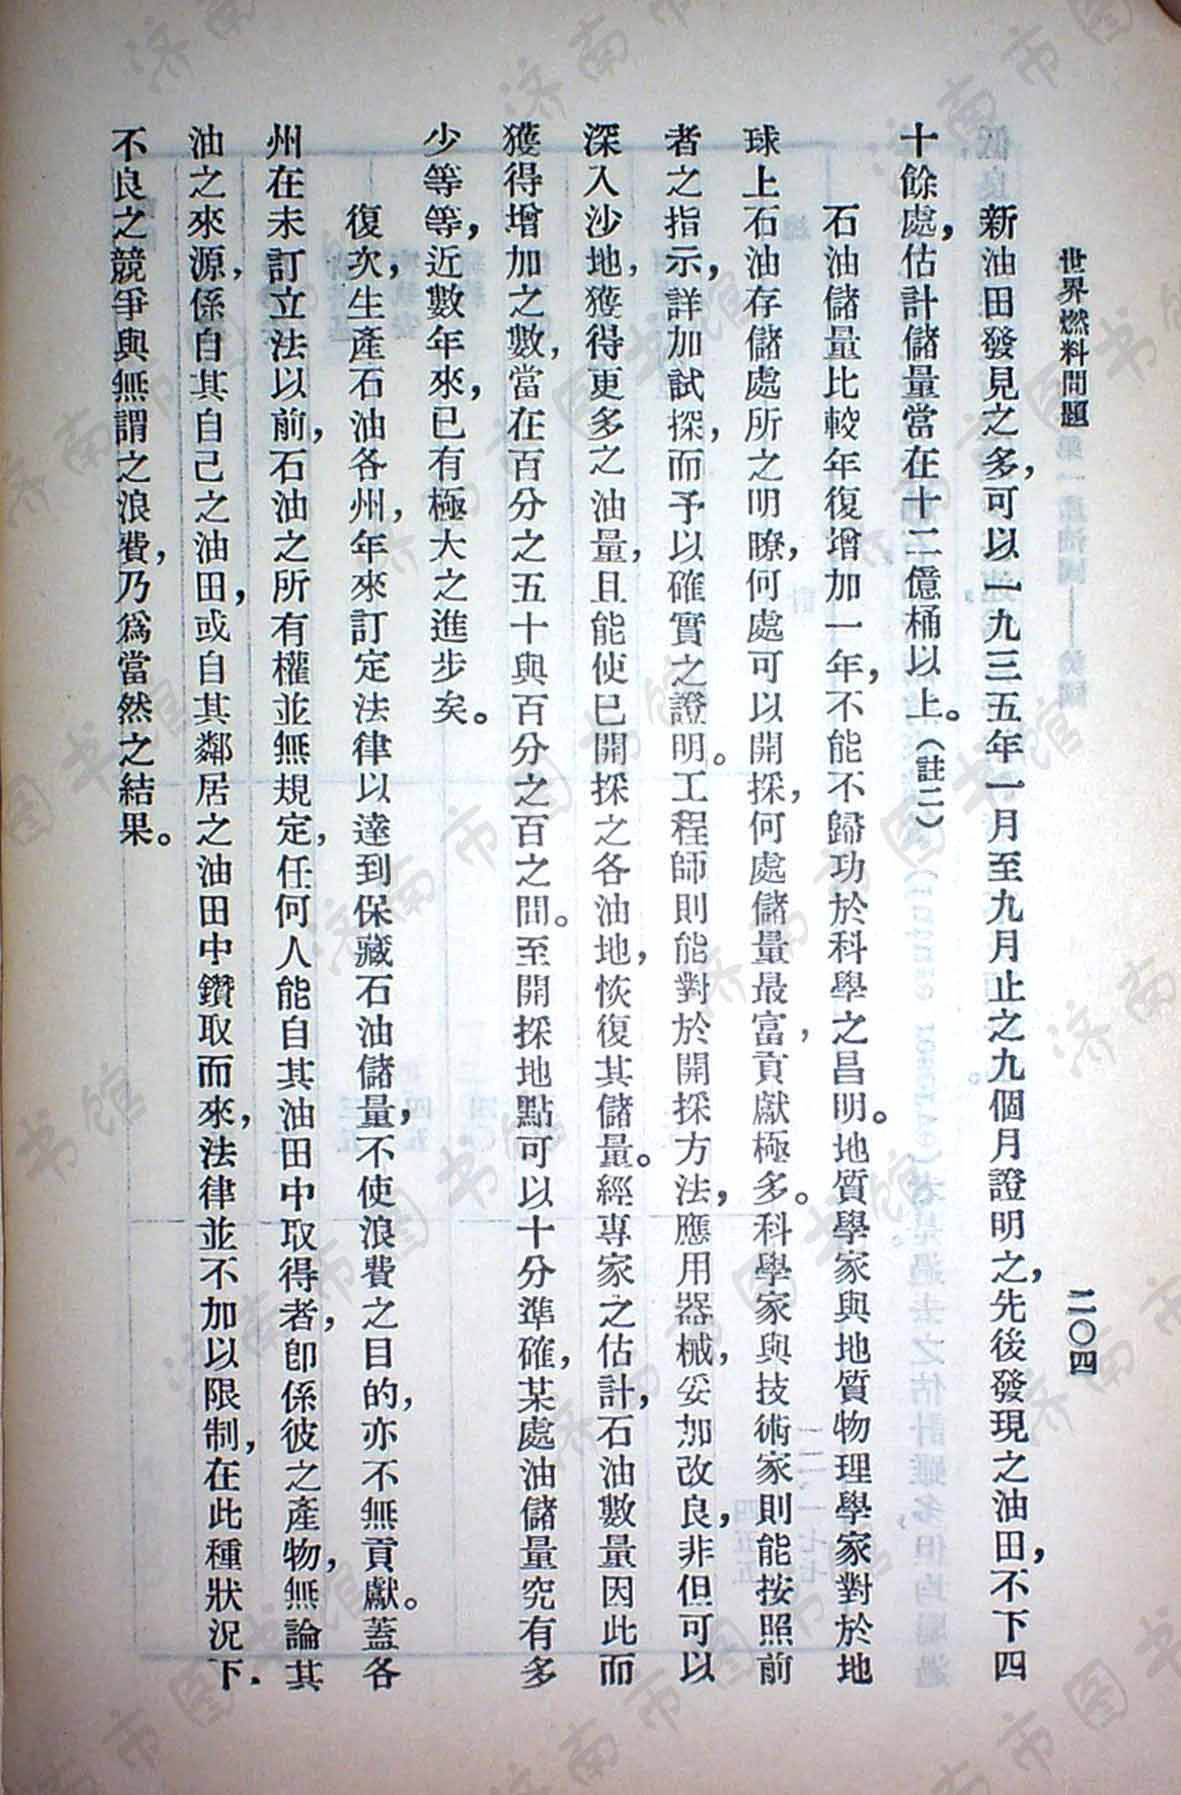 世界燃料問題
二〇四
新油田發見之多，可以一九三五年一月至九月止之九個月證明之，先後發現之油田，不下四
十餘處，估計儲量當在十二億桶以上。（註二）
石油儲量比較年復增加一年，不能不歸功於科學之昌明。地質學家與地質物理學家對於地
球上石油存儲處所之明瞭，何處可以開採，何處儲量最富，貢獻極多。科學家與技術家則能按照前
者之指示，詳加試探，而予以確實之證明。工程師則能對於開採方法，應用器械，妥加改良，非但可以
深入沙地，獲得更多之油量，且能使已開採之各油地，恢復其儲量。經專家之估計，石油數量因此而
獲得增加之數，當在百分之五十與百分之百之間。至開採地點可以十分準確，某處油儲量究有多
少等等，近數年來，已有極大之進步矣。
復次，生產石油各州，年來訂定法律以達到保藏石油儲量，不使浪費之目的，亦不無貢獻。蓋各
州在未訂立法以前，石油之所有權並無規定，任何人能自其油田中取得者，即係彼之產物，無論其
油之來源，係自其自己之油田，或自其鄰居之油田中鑽取而來，法律並不加以限制，在此種狀況下．
不良之競爭與無謂之浪費，乃爲當然之結果。
济南市图书馆